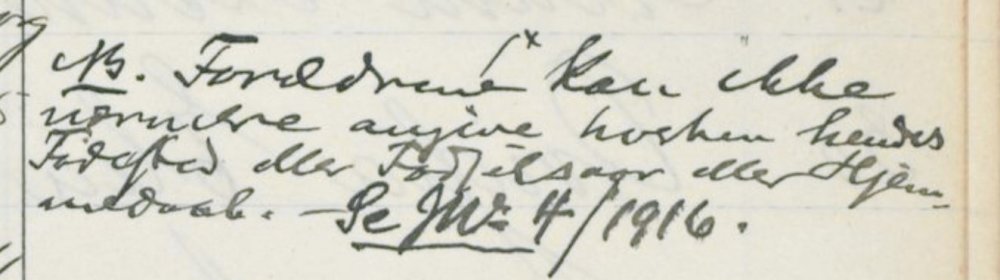 NB. Forældrene (x kan ikke
nærmere angive hverken hendes
Fødested eller Fødselsaar eller Hjem-
medaab. - Se J.Nr. 4/1916.